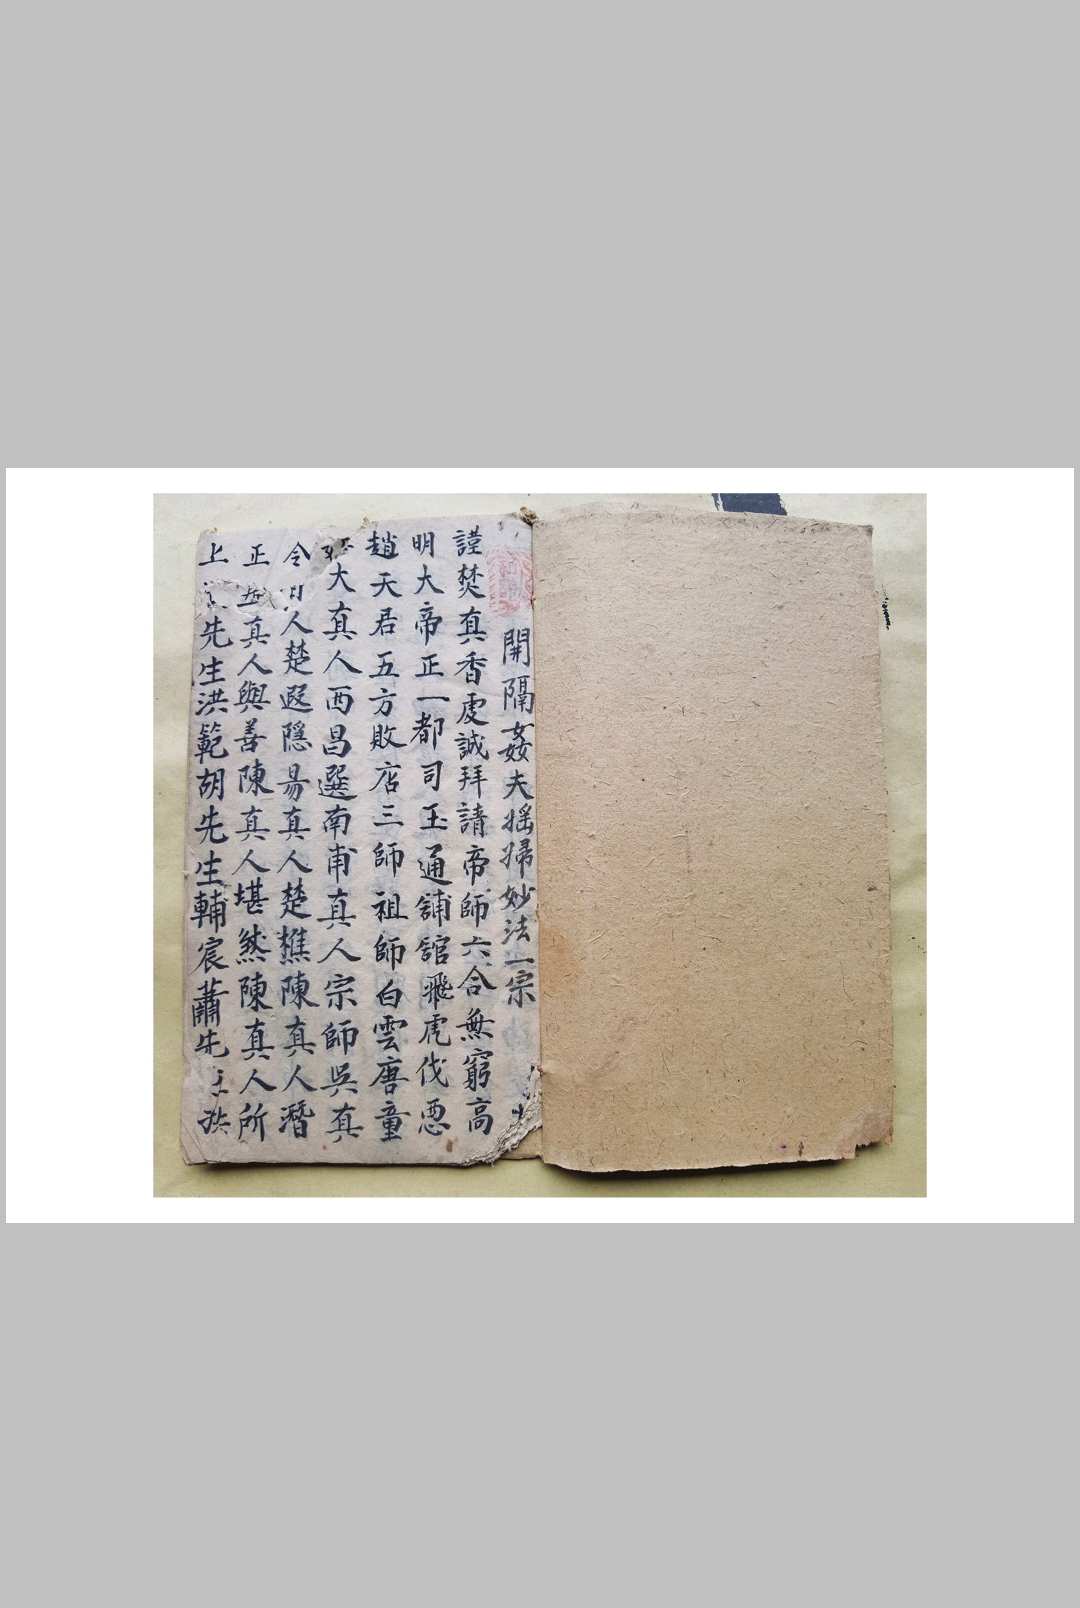 開隔姦夫㨱婦妙法一宗
謹焚真香虔誠拜請帝師六合無窮高
明大帝正一都司玉通舖舘飛虎伐惡
趙天君五方敗店三師祖師白雲唐童
大真人西昌選南甫真人宗師吳真
令 人楚遐隱易真人楚樵陳真人潛
正 真人與善陳真人堪然陳真人所
上 先生洪範胡先生輔宸蕭先